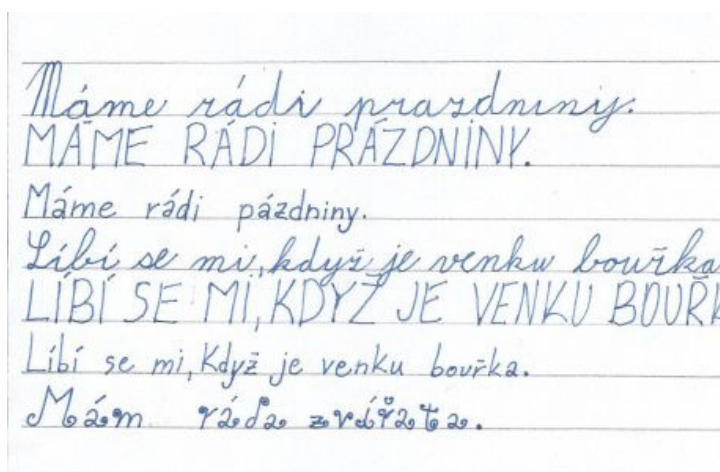 Máme rádi prazdniny.
MÁME RÁDI PRÁZDNINY.
Máme rádi pázdniny.
Líbí se mi, když je venku bouřka
LÍBÍ SE MI, KDYŽ JE VENKU BOUŘK
Líbí se mi, Když je venku bouřka.
Mám ráda zvířata.